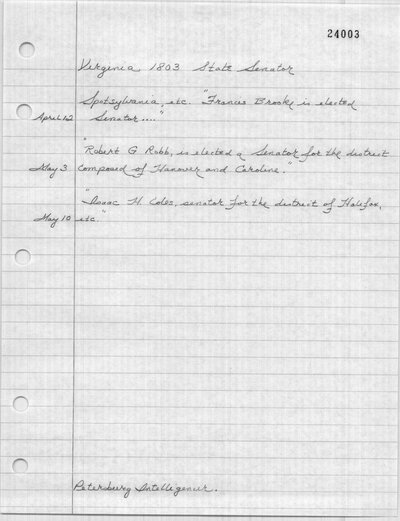 24003
Virginia 1803 State Senator
Spotsylvania, etc. "Francis Brooke is elected
April 12 Senator...."
"Robert G. Robb, is elected a Senator for the district
May 3 composed of Hanover and Caroline."
"Isaac H. Coles, senator for the district of Halifax,
May 10 etc."
Petersburg Intelligencer.